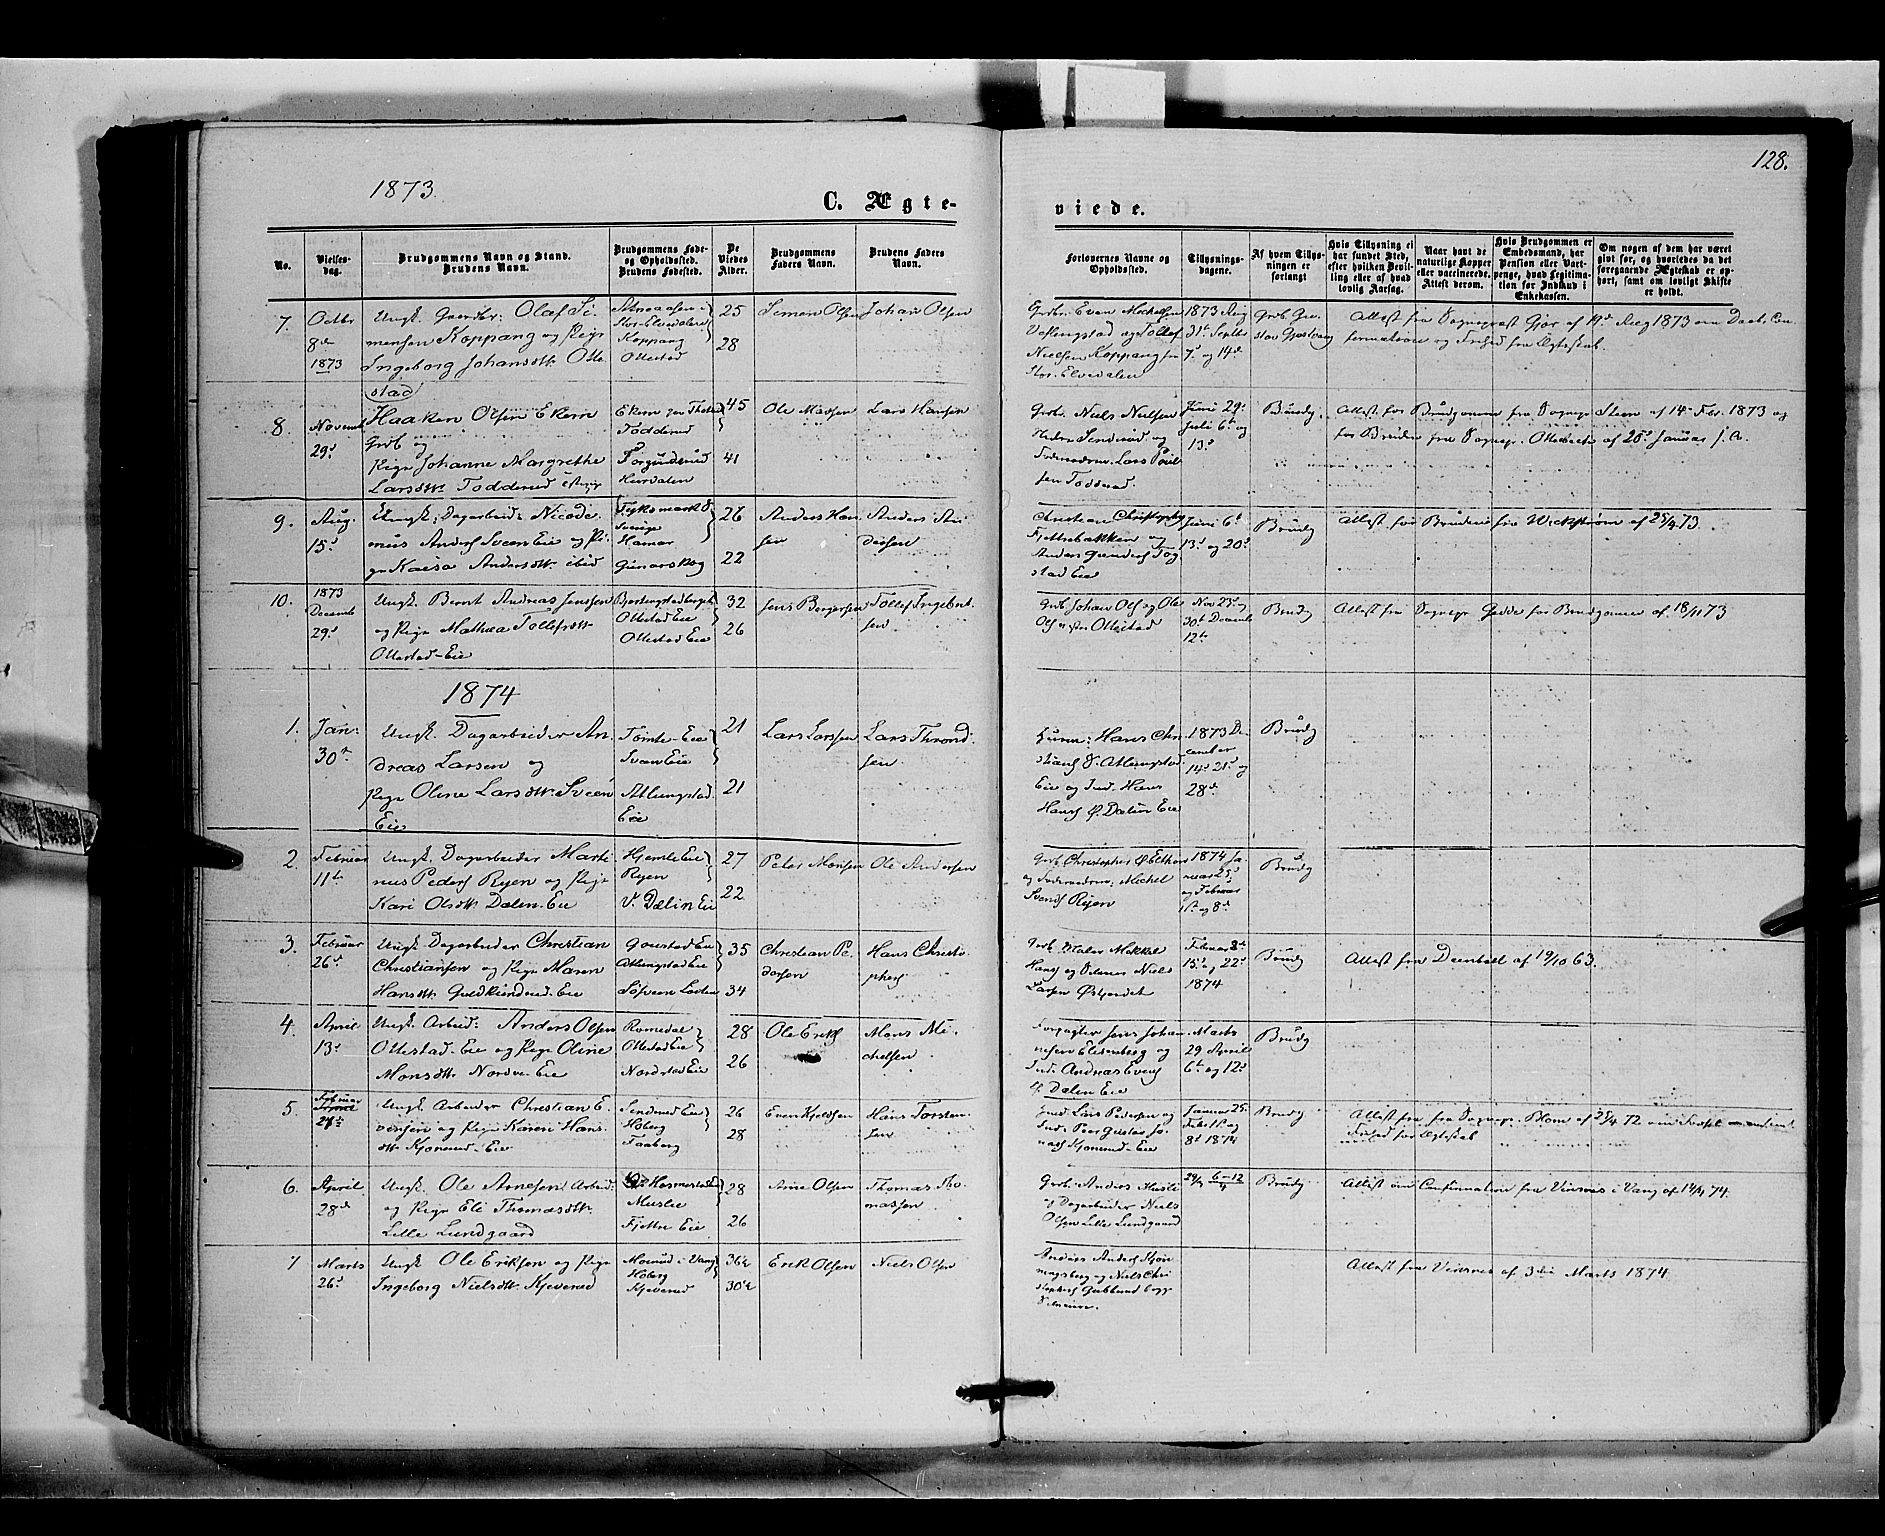 128.
1873.
C. Ægte-
viede.
No.
Vielses-
dag.
Brudgommens Navn og Stand.
Brudens Navn.
Brudgommens Føde-
og Opholdssted.
Brudens Fødested.
De
Viedes
Alder.
Brudgommens
Faders Navn.
Brudens Faders
Navn.
Forlovernes Navne og
Opholdssted.
Tillysnings-
dagene.
Af hvem Tillys-
ningen er
forlangt
Hvis Tillysning ei
har fundet Sted,
efter hvilken Bevil-
ling eller af hvad
lovlig Aarsag.
Naar havt de
naturlige Kopper
eller vaccinerede.
Attest derom.
Hvis Brudgommen er
Embedsmand, har
Pension eller Vart-
penge, hvad Legitima-
tion for Indskud i
Enkekassen.
Om nogen af dem har været
gift før, og hvorledes da det
foregaaende Ægteskab er op-
hørt, samt om lovligt Skifte
er holdt.
7.
Octbr
8de
1873
Ungk. Gaardbr: Olaf Si-
mensen Koppang og Pige
Ingeborg Johansdtr. Otte-
stad
Stor-Elvedalen
Koppang
Ottestad
25
28
Simen Olsen
Johan Olsen
Grb. Even Michelsen
og Tollef
Nielsen Koppang fra
Stor-Elvedalen
1873 Aug
31te Septbr
7de og 14de
Attest fra Sognepræst Gjør af 19de Aug 1873 om Daab, Con-
firmation og Frihed fra Ægteskab.
8.
Novemb
29d
Haaken Olsen Ekern
Grb og
Pige Johanne Margrethe
Larsdtr. Todderud
Todderud
Hurdalen
45
41
Ole Madsen
Lars Hansen
Grb. Niels Nielsen
og
Lars
sen Todderud.
Juni 29d
Juli 6te og
13d
Brudg.
Attest for Brudgommen fra Sognepr. Steen af 14 Febr. 1873 og
for Bruden fra Sognepr. af 28d Januar
9.
Aug.
15d
Ungk. Dagarbeid: Nicode-
mus Anders Sveen Eie og Pi-
ge Kaisa Andersdtr. ibid
Sverige
Hamar
Gunarskog
26
22
Anders Han
sen
Anders An-
dersen
Christian Christophs
Fjettrebakken og
Anders
stad Eie
Juni 6te
13d og 20d
Brudg
Attest for Brudene fra Wickstrøm af 25/4 73.
10.
1873
Decemb
29d
Ungk. Bernt Andreas Jenssen
og Pige Mathea Tollefsdtr.
Ottestad-Eie
Ottestad Eie
Ottestad Eie
32
26
Jens Bergersen
Tollef Ingebrt
sen
Grb. Johan Ols og Ole
Ottestad
Nov 23d
30te Decemb
12te
Brudg
Attest fra Sognepr. Gedde for Brudgommen af 18/11 73
1874
1.
Jan:
30te
Ungk. Dagarbeider An-
dreas Larsen og
Pige Oline Larsdtr. Sveen
Eie
Tomte-Eie
Sveen Eie
Atlungstad
Eie
21
21
Lars Larsen
Lars Thrond-
sen
Husm: Hans Chri
Atlungstad
Eie og Ind. Hans
Hans Ø. Dælin Eie
1873 De
cember
14d 21d og
28de
Brudg
2.
Februar
11te
Ungk. Dagarbeider Marti-
nus Peders Ryen og Pige
Kari Olsdtr. Dælen-Eie
Hjemli Eie
Ryen
V. Dælin Eie
27
22
Peter Monsen
Ole Andersen
Grb Christopher
og Michel
Svends Ryen
1874 Ja
nuar 25d
og Februar
1ste og 8de
Brudg
3.
Februar
26d
Ungk. Dagarbeider Christian
Christiansen og Pige Maren
Hansdtr. Guldkunrud-Eie
Gaustad Eie
Atlungstad Eie
Løten
35
34
Christian Pe-
dersen
Hans Christo-
phers
Grb. Mikkel
Hans og Niels
Larsen
Februar 8de
15d og 22d
1874
Brudg
Attest fra af 19/10 63.
4.
April
13d
Ungk. Arbeid: Anders Olsen
Ottestad-Eie og Pige Oline
Monsdtr. Nordvi Eie
Romedal
Ottestad Eie
Nordstad Eie
28
26
Ole Eriks
Mons Mi-
chelsen
Forpagter Jens Johan-
nesen og
Ind: Andreas Evens
V. Dælen Eie
Marts
29 April
6te og 12d
Brudg
5.
Februar
28d
Ungk. Arbeider Christian E-
vensen og Pige Karen Hans-
dtr Kjonerud-Eie
Eie
Hoberg
Faaberg
26
28
Even Kjeldsen
Hans Torsten-
sen
Ind Lars Pedersen og
Ind: Peer Gustav Jo-
nas Kjonerud-Eie
Januar 25.
Feb 1ste og
8d 1874
Brudg
Attest fra Sognepr. af 25/4 72 om
Frihed for Ægteskab
6.
April
28de
Ungk. Ole Arnesen Arbeid:
og Pige Eli Thomasdtr.
Lille Lundgaard
Muslie
Fjettre Eie
28
26
Arne Olsen
Thomas Tho-
massen
Grb. Anders
og Dagarbeider Niels
Olsen Lille Lundgaard
29/3 6-12/4
Brudg
Attest om Confirmation fra Vinsnes i Vang af 14/4 74.
7
Marts
26d
Ungk Ole Eriksen og Pige
Ingeborg Nielsdtr. Kjeverud
i Vang
Hoberg
Kjeverud
36½
30½
Erik Olsen
Niels Olsen
Andreas Anders
og Niels Chri
stophers
Attest fra Vinsnes af 3die Marts 1874